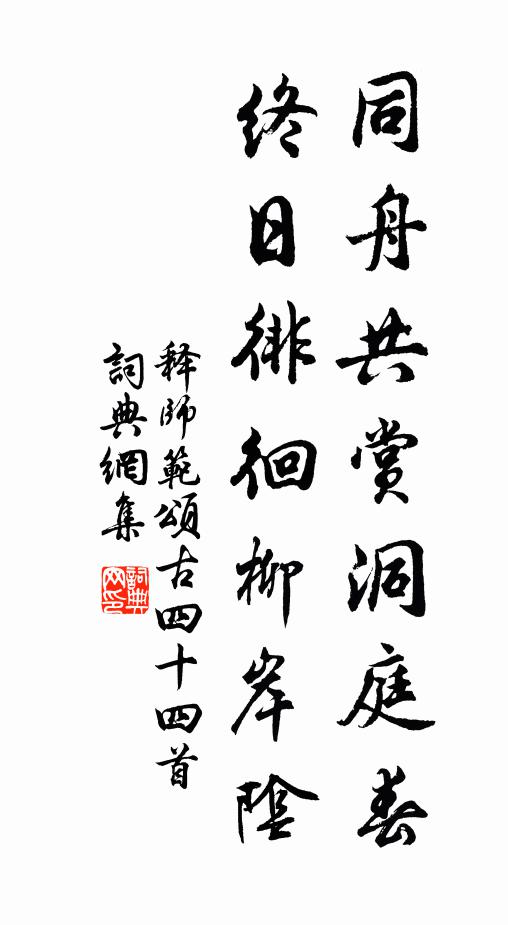 同舟共赏洞庭春
终日徘徊柳岸陰
释师範頌古四十四首
詞典網集
詞典
网印